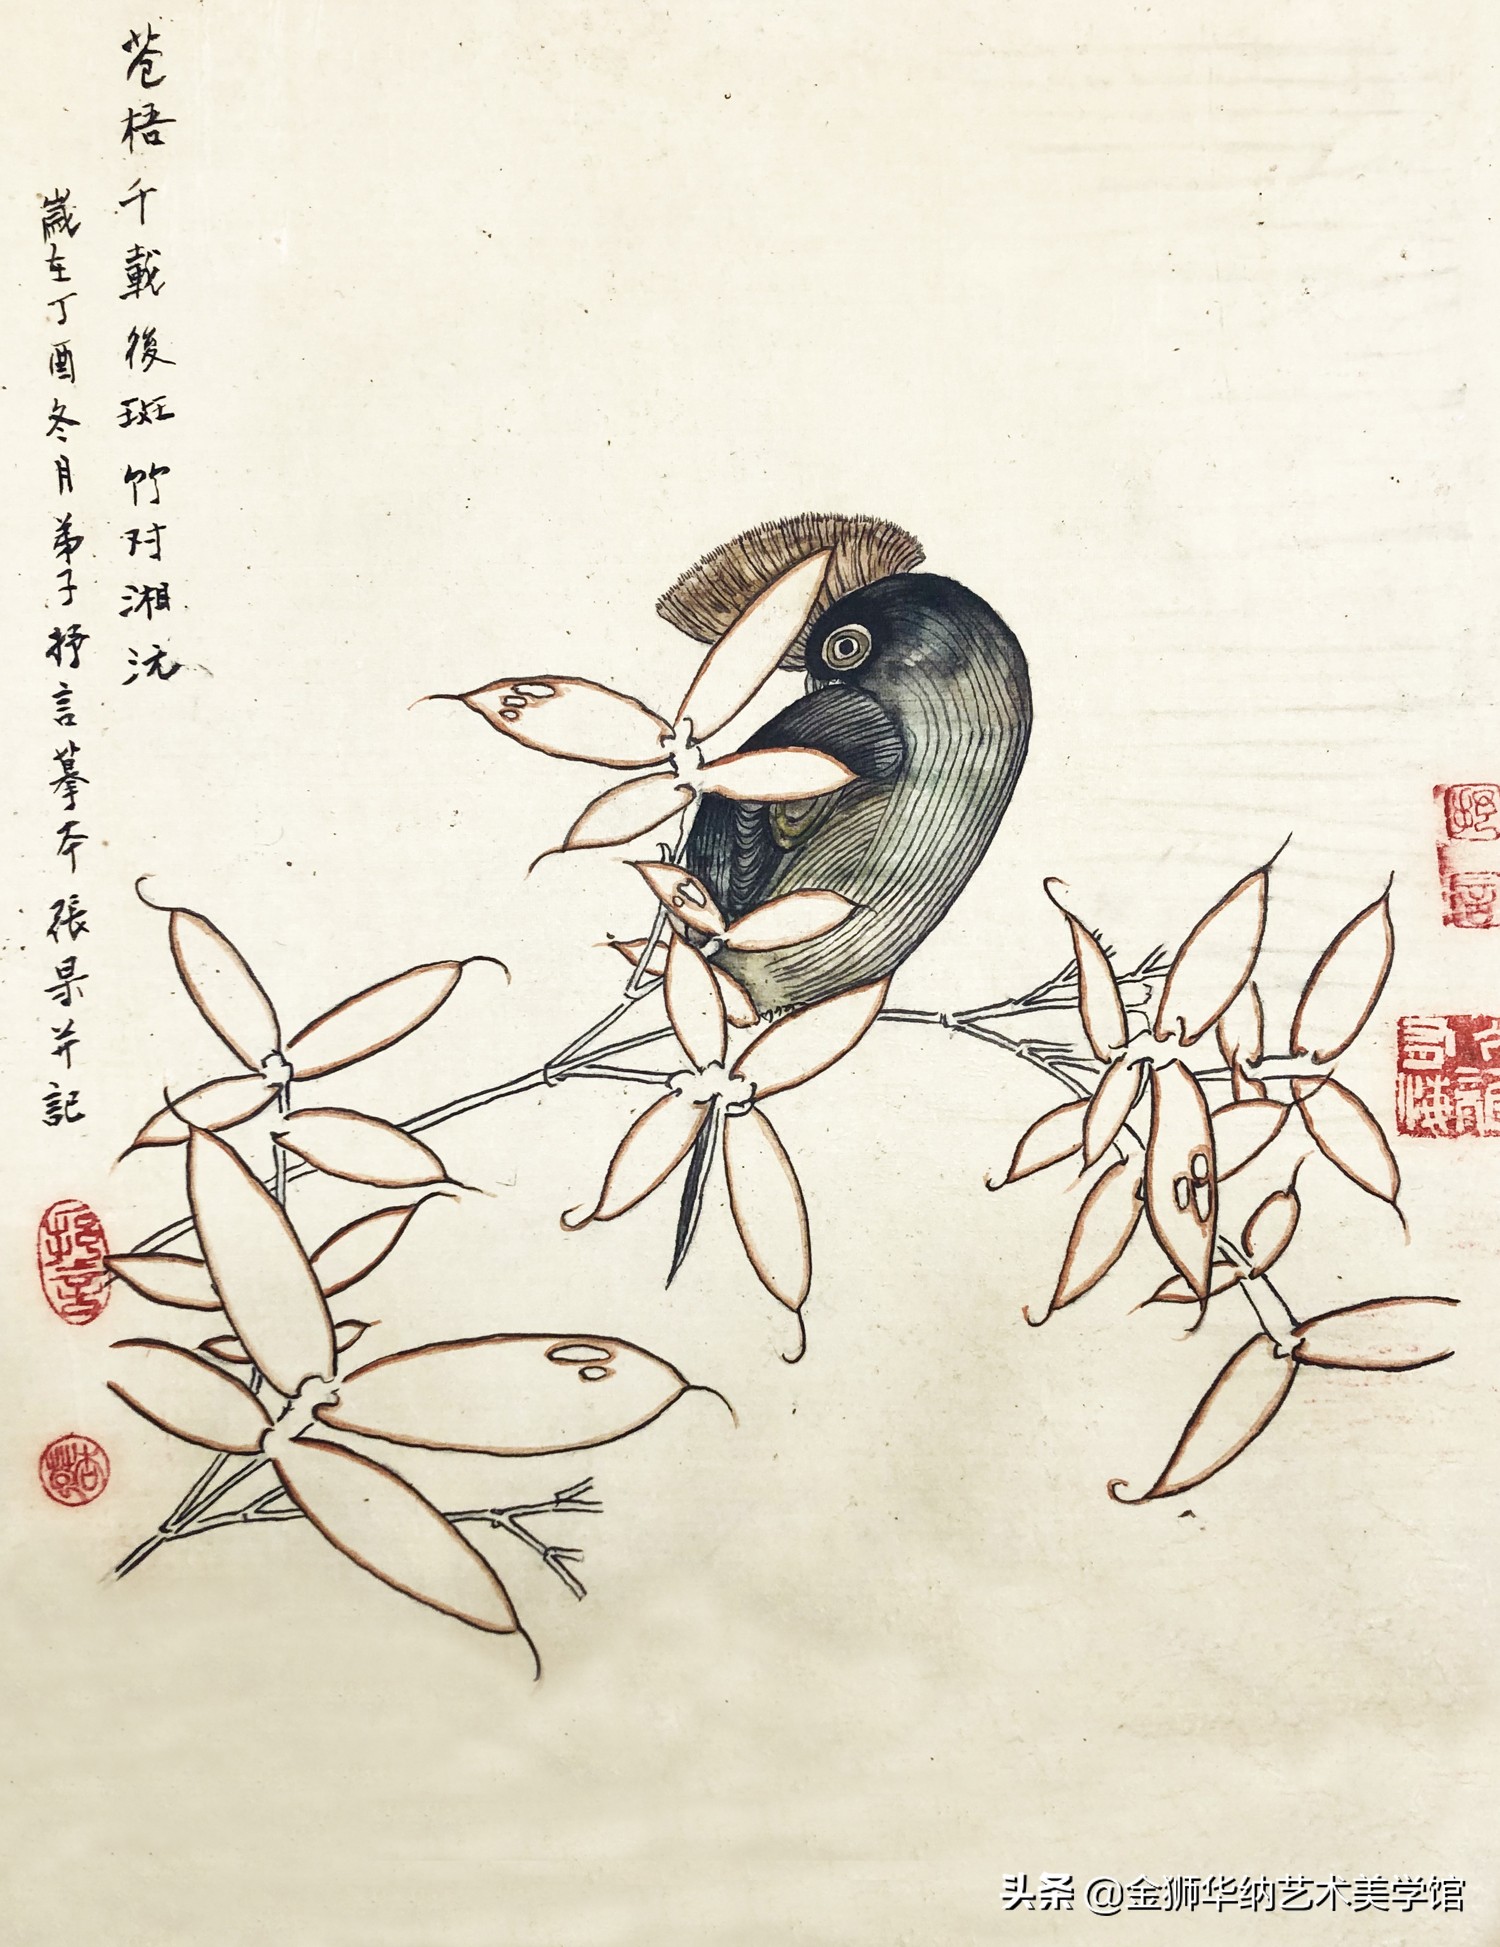 苍梧千載後斑竹对湘沅
歲在丁酉冬月弟子抒言摹本張杲并記
头条 @金狮华纳艺术美学馆